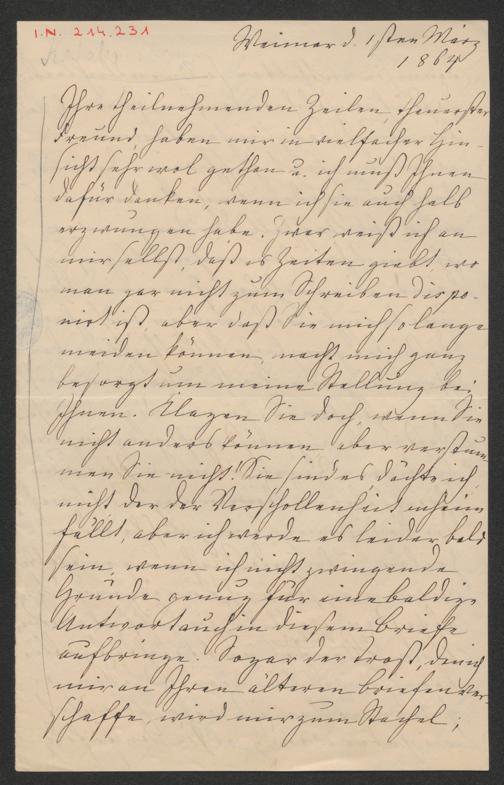 I.N. 214.231
Weimar d. 1sten März
1864
Ihre theilnehmenden Zeilen, theuerster
Freund, haben mir in vielfacher Hin-
sicht sehr wol gethan u. ich muß Ihnen
dafür danken, wenn ich sie auch halb
erzwungen habe. Zwar weiß ich an
mir selbst, daß es Zeiten giebt, wo
man gar nicht zum Schreiben dispo-
nirt ist, aber daß Sie mich so lange
meiden können, macht mich ganz
besorgt um meine Stellung bei
Ihnen. Klagen Sie doch, wenn Sie
nicht anders können, aber verstum
men Sie nicht! Sie sind es dächte ich
nicht der der Verschollenheit anheim
fällt, aber ich werde es leider bald
sein, wenn ich nicht zwingende
Gründe genug für eine baldige
Antwort auch in diesem Briefe
aufbringe. Sogar der Trost, den ich
mir an Ihren älteren Briefen ver-
schaffe, wird mir zum Stachel;